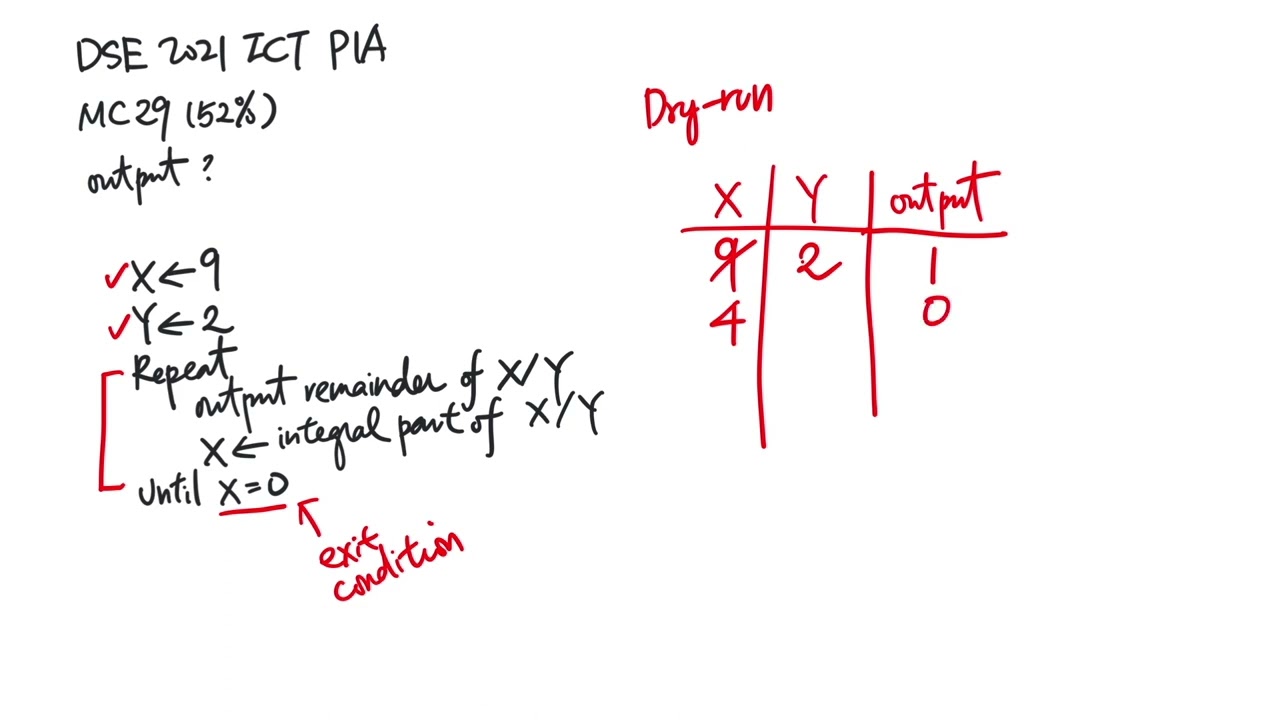 DSE 2021 ICT P1A
MC29 (52%)
output ?
✓X ← 9
✓Y ← 2
Repeat
output remainder of X/Y
X ← integral part of X/Y
Until X=0
exit
condition
Dry-run
X Y output
9 2 1
4 0